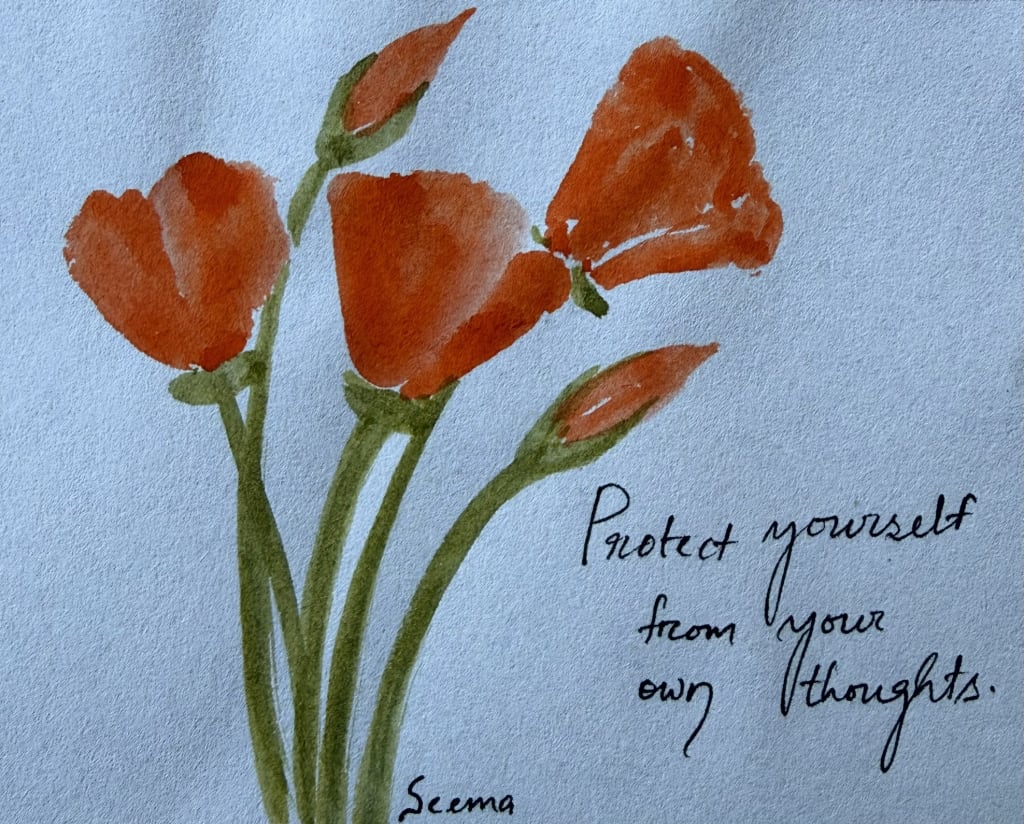 Protect yourself
from your
own thoughts.
Seema